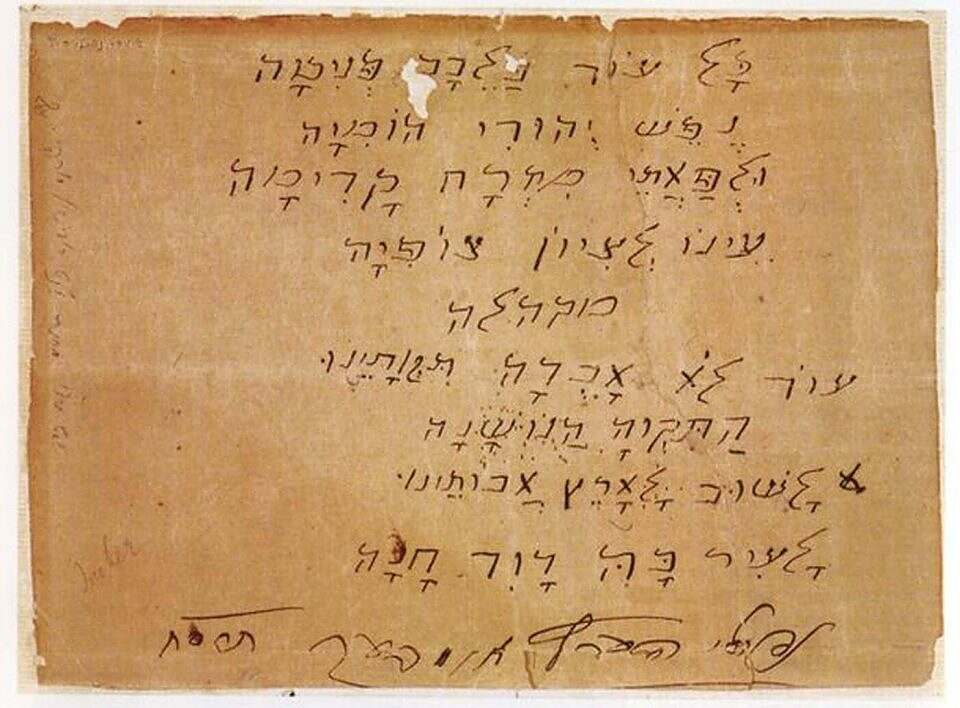 כָּל עוֹד בַּלֵבָב פְּנִימָה
נֶפֶשׁ יְהוּדִי הוֹמִיָה
וּלְפַאֲתֵי מִזְרָח קָדִימָה
עֵינוֹ לְצִיוֹן צוֹפִיָה
מקהלה
עוֹד לֹא אָבְדָה תִּקְוָתֵינוּ
הַתִּקְוָה הַנוֹשָׁנָה
לָשׁוּב לְאֶרֶץ אֲבוֹתֵינוּ
לָעִיר בָּהּ דָוִד חָנָה
נפתלי הערץ אימבער תרס״ח